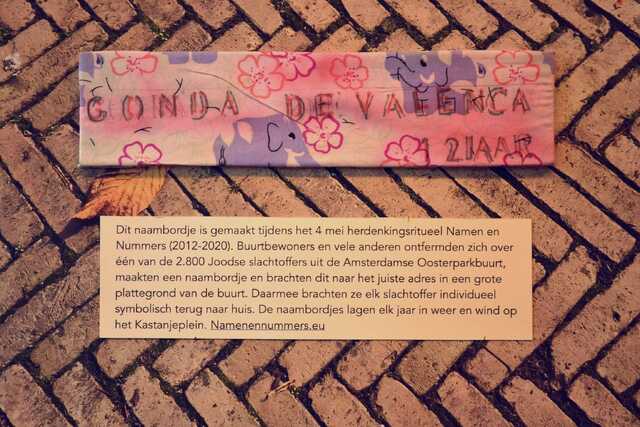 GONDA DE VALENCA
12 JAAR
Dit naambordje is gemaakt tijdens het 4 mei herdenkingsritueel Namen en
Nummers (2012-2020). Buurtbewoners en vele anderen ontfermden zich over
één van de 2.800 Joodse slachtoffers uit de Amsterdamse Oosterparkbuurt,
maakten een naambordje en brachten dit naar het juiste adres in een grote
plattegrond van de buurt. Daarmee brachten ze elk slachtoffer individueel
symbolisch terug naar huis. De naambordjes lagen elk jaar in weer en wind op
het Kastanjeplein. Namenennummers.eu